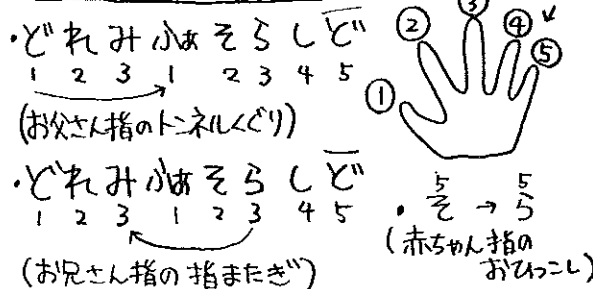 ・どれみふぁそらしど
1 2 3 1 2 3 4 5
(お父さん指のトンネルくぐり)
・どれみふぁそらしど
1 2 3 1 2 3 4 5
(お兄さん指の指またぎ)
① ② ③ ④ ⑤
5 5
・そ→ら
(赤ちゃん指の
おひっこし)